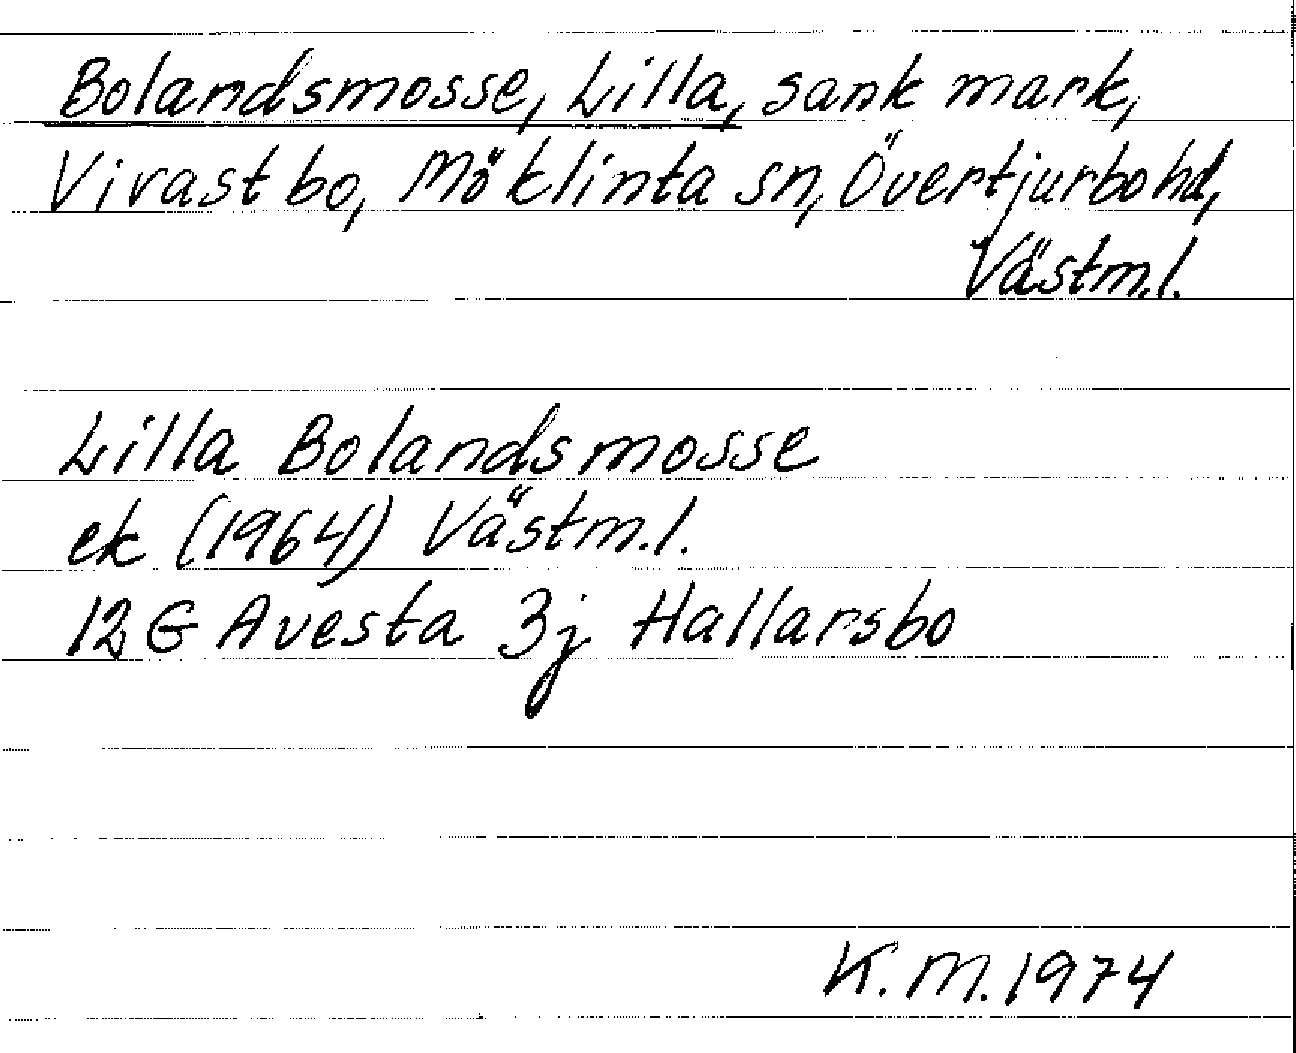 Bolandsmosse, Lilla, sank mark,
Vivastbo, Möklinta sn, Övertjurbo hd,
Västm.l.
Lilla Bolandsmosse
ek (1964) Västm.l.
12 G Avesta 3j Hallarsbo
K.M. 1974